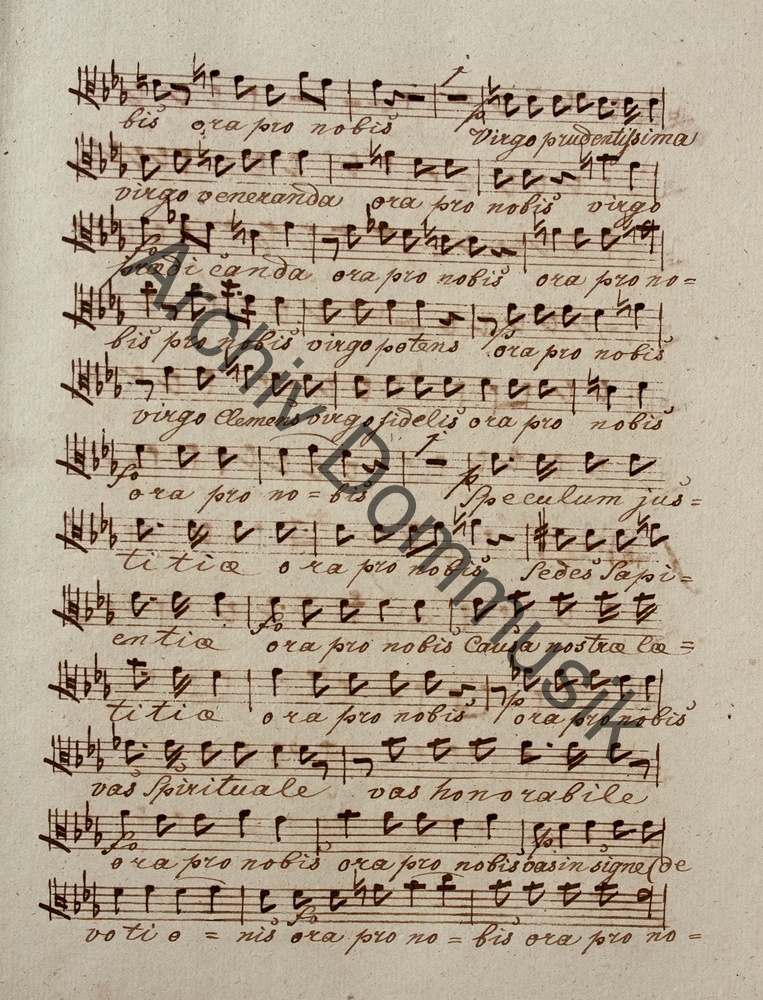 bis ora pro nobis Virgo prudentissima
virgo veneranda ora pro nobis virgo
prædicanda ora pro nobis ora pro no=
bis pro nobis virgo potens ora pro nobis
virgo Clemens virgo fidelis ora pro nobis
ora pro no=bis Speculum jus=
titiæ ora pro nobis Sedes Sapi=
entiæ ora pro nobis Causa nostræ læ=
titiæ ora pro nobis ora pro nobis
vas Spirituale vas honorabile
ora pro nobis ora pro nobis vas insigne (de
votio=nis ora pro no=bis ora pro no=
Archiv Dommusik